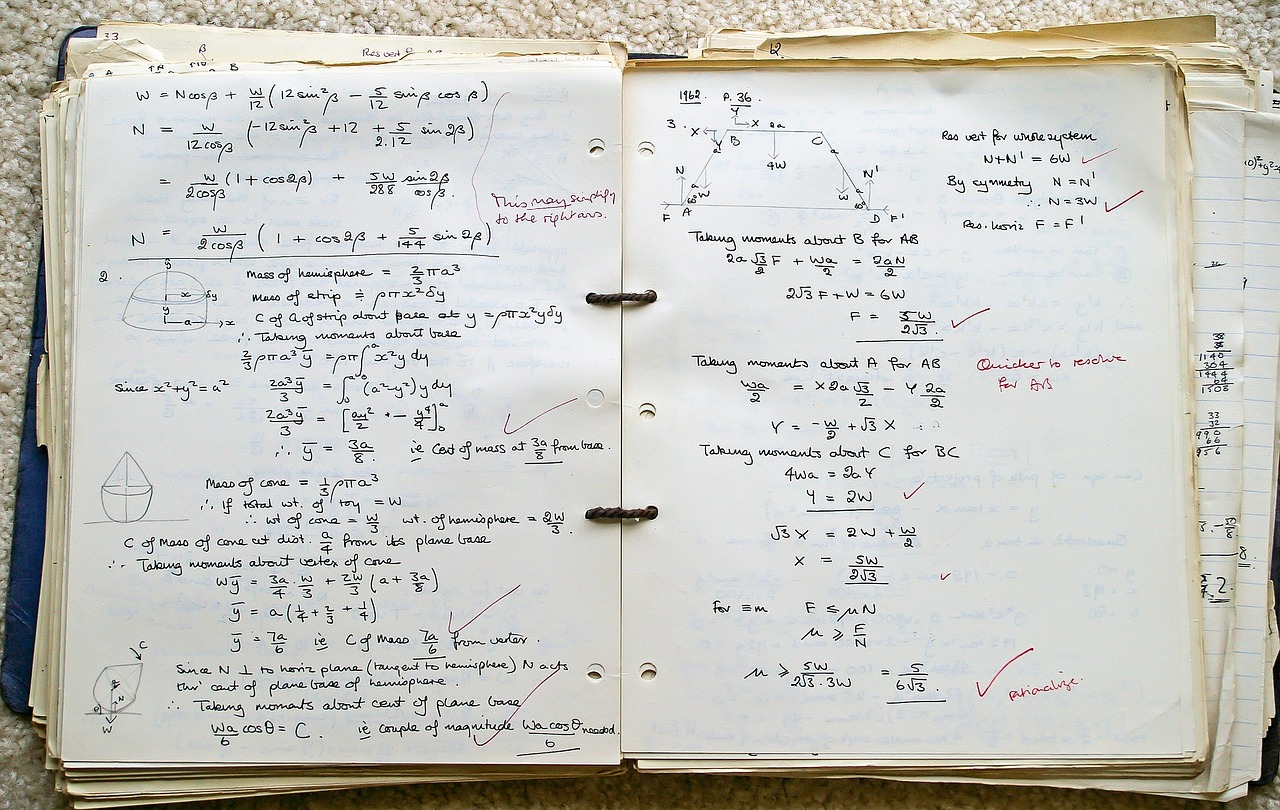 33.
β
Res vert
B
W = Ncosβ + W/12 (12sin²β − 5/12 sinβ cosβ)
N = W/12cosβ (−12sin²β + 12 + 5/2.12 sin2β)
= W/2cosβ (1 + cos2β) + 5W/288 sin2β/cosβ.
This may simplify
to the right ans.
N = W/2cosβ (1 + cos2β + 5/144 sin2β)
2.
y
x
δy
y
a
x
Mass of hemisphere = 2/3 πa³
Mass of strip ≑ ρπx²δy
C of G of strip about base at y = ρπx²yδy
∴ Taking moments about base
2/3 ρπa³ȳ = ρπ∫₀ᵃ x²y dy
Since x²+y²=a² 2a³ȳ/3 = ∫₀ᵃ (a²−y²) y dy
2a³ȳ/3 = [ay²/2 − y⁴/4]₀ᵃ
∴ ȳ = 3a/8 ie Cent of mass at 3a/8 from base.
Mass of cone = 1/3 ρπa³
∴ If total wt. of toy = W
∴ wt of cone = W/3 wt. of hemisphere = 2W/3.
C of Mass of cone at dist. a/4 from its plane base
∴ Taking moments about vertex of cone
Wȳ = 3a/4 . W/3 + 2W/3 (a + 3a/8)
ȳ = a(1/4 + 2/3 + 1/4)
ȳ = 7a/6 ie C of Mass 7a/6 from vertex.
C
θ
N
W
Since N ⊥ to horiz plane (tangent to hemisphere) N acts
thro' cent of plane base of hemisphere.
∴ Taking moments about cent of plane base
Wa/6 cosθ = C. ie couple of magnitude Wa cosθ/6 needed.
12.
1962. P. 36.
3.
Y
X
2a
X
B
C
Y
a
4W
a
N
a
W
W
a
N'
60°
60°
F
A
D
F'
Res vert for whole system
N+N' = 6W
By symmetry N = N'
∴ N = 3W
Res. horiz F = F'
Taking moments about B for AB
2a √3/2 F + Wa/2 = 2aN/2
2√3 F + W = 6W
F = 5W/2√3.
Taking moments about A for AB
Quicker to resolve
for AB
Wa/2 = X2a √3/2 − Y 2a/2
Y = −W/2 + √3 X
Taking moments about C for BC
4Wa = 2aY
Y = 2W
√3 X = 2W + W/2
X = 5W/2√3
For ≡m F ≤ μN
μ ≥ F/N
μ ≥ 5W/2√3.3W = 5/6√3.
rationalize.
38
38
1140
304
1444
64
1508
33
32
990
66
956